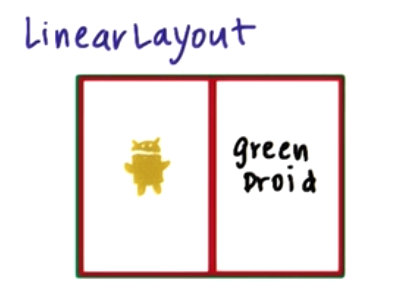 LinearLayout
green
Droid